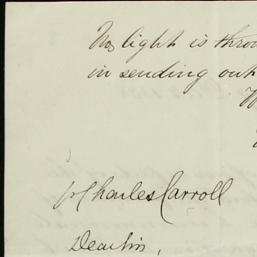 No light is throw
in sending out
Charles Carroll
Dear Sir,